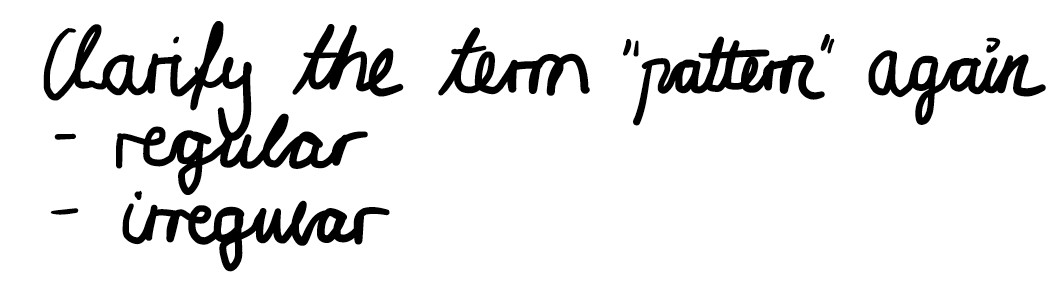 Clarify the term "pattern" again
- regular
- irregular